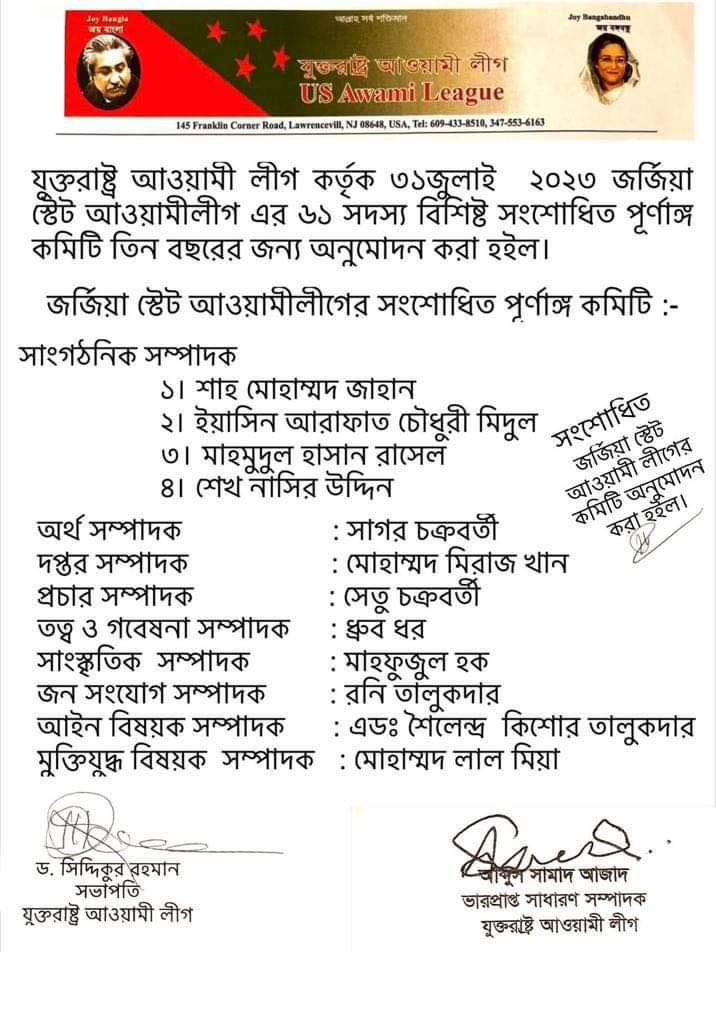 Joy Bangla
জয় বাংলা
আল্লাহ সর্ব শক্তিমান
Joy Bangabandhu
জয় বঙ্গবন্ধু
যুক্তরাষ্ট্র আওয়ামী লীগ
US Awami League
145 Franklin Corner Road, Lawrencevill, NJ 08648, USA, Tel: 609-433-8510, 347-553-6163
যুক্তরাষ্ট্র আওয়ামী লীগ কর্তৃক ৩১জুলাই ২০২৩ জর্জিয়া
স্টেট আওয়ামীলীগ এর ৬১ সদস্য বিশিষ্ট সংশোধিত পূর্ণাঙ্গ
কমিটি তিন বছরের জন্য অনুমোদন করা হইল।
জর্জিয়া স্টেট আওয়ামীলীগের সংশোধিত পূর্ণাঙ্গ কমিটি :-
সাংগঠনিক সম্পাদক
১। শাহ মোহাম্মদ জাহান
২। ইয়াসিন আরাফাত চৌধুরী মিদুল
৩। মাহমুদুল হাসান রাসেল
৪। শেখ নাসির উদ্দিন
সংশোধিত
জর্জিয়া স্টেট
আওয়ামী লীগের
কমিটি অনুমোদন
করা হইল।
অর্থ সম্পাদক : সাগর চক্রবর্তী
দপ্তর সম্পাদক : মোহাম্মদ মিরাজ খান
প্রচার সম্পাদক : সেতু চক্রবর্তী
তত্ব ও গবেষনা সম্পাদক : ধ্রুব ধর
সাংস্কৃতিক সম্পাদক : মাহফুজুল হক
জন সংযোগ সম্পাদক : রনি তালুকদার
আইন বিষয়ক সম্পাদক : এডঃ শৈলেন্দ্র কিশোর তালুকদার
মুক্তিযুদ্ধ বিষয়ক সম্পাদক : মোহাম্মদ লাল মিয়া
ড. সিদ্দিকুর রহমান
সভাপতি
যুক্তরাষ্ট্র আওয়ামী লীগ
আব্দুস সামাদ আজাদ
ভারপ্রাপ্ত সাধারণ সম্পাদক
যুক্তরাষ্ট্র আওয়ামী লীগ